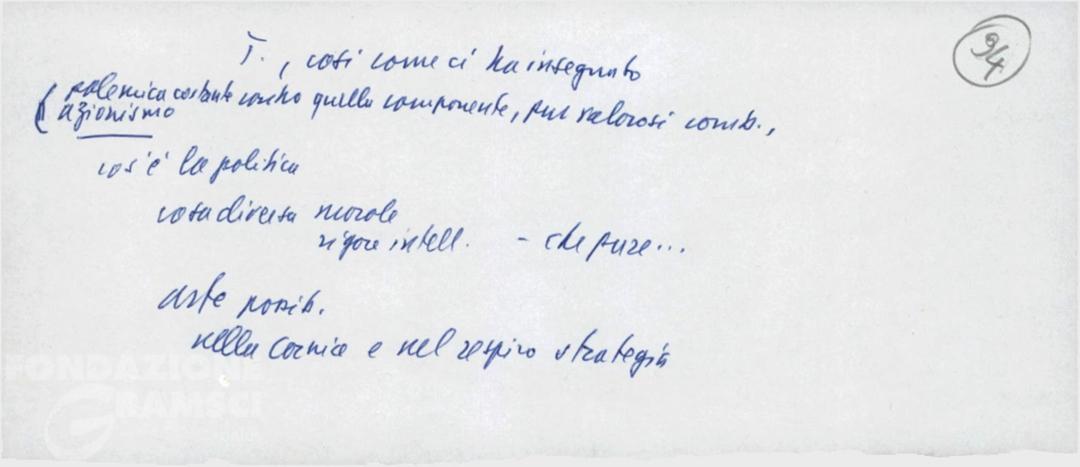 94
T., così come ci ha insegnato
(polemica costante contro quella componente, pur valorosi comb.,
azionismo
cos'è la politica
cosa diversa morale
rigore intell. - che pure...
arte possib.
nella cornice e nel respiro strategia
FONDAZIONE
GRAMSCI